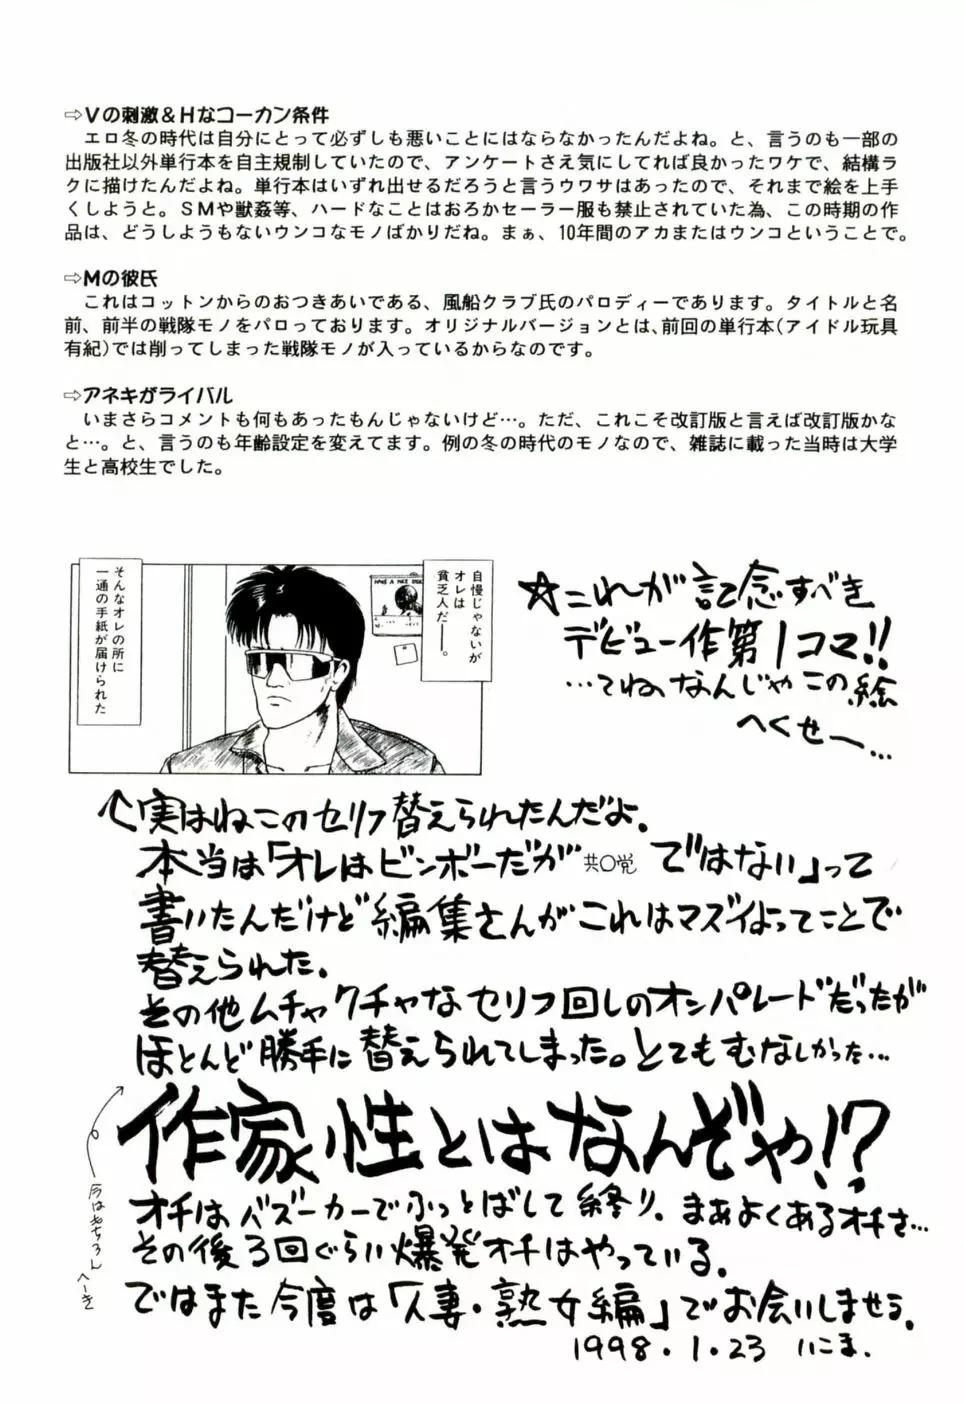 ⇨Vの刺激＆Hなコーカン条件
エロ冬の時代は自分にとって必ずしも悪いことにはならなかったんだよね。と、言うのも一部の
出版社以外単行本を自主規制していたので、アンケートさえ気にしてれば良かったワケで、結構ラ
クに描けたんだよね。単行本はいずれ出せるだろうと言うウワサはあったので、それまで絵を上手
くしようと。SMや獣姦等、ハードなことはおろかセーラー服も禁止されていた為、この時期の作
品は、どうしようもないウンコなモノばかりだね。まぁ、10年間のアカまたはウンコということで。
⇨Mの彼氏
これはコットンからのおつきあいである、風船クラブ氏のパロディーであります。タイトルと名
前、前半の戦隊モノをパロっております。オリジナルバージョンとは、前回の単行本(アイドル玩具
有紀)では削ってしまった戦隊モノが入っているからなのです。
⇨アネキがライバル
いまさらコメントも何もあったもんじゃないけど…。ただ、これこそ改訂版と言えば改訂版かな
と…。と、言うのも年齢設定を変えてます。例の冬の時代のモノなので、雑誌に載った当時は大学
生と高校生でした。
自慢じゃないが
オレは
貧乏人だ――。
HAVE A NICE
そんなオレの所に
一通の手紙が届けられた
☆これが記念すべき
デビュー作第1コマ!!
…てねのなんじゃこの絵
へくせー…
↑実はねこのセリフ替えられたんだよ.
本当は「オレはビンボーだが 共〇党 ではない」って
書いたんだけど編集さんがこれはマズイよってことで
替えられた.
その他ムチャクチャなセリフ回しのオンパレードだったが
ほとんど勝手に替えられてしまった。とてもむなしかった…
作家性とはなんぞや!?
今はもちろん
へーき
オチはバズーカーでふっとばして終り. まあよくあるオチさ…
その後3回ぐらい爆発オチはやっている.
ではまた今度は「人妻・熟女編」でお会いしませう.
1998.1.23 いこま.